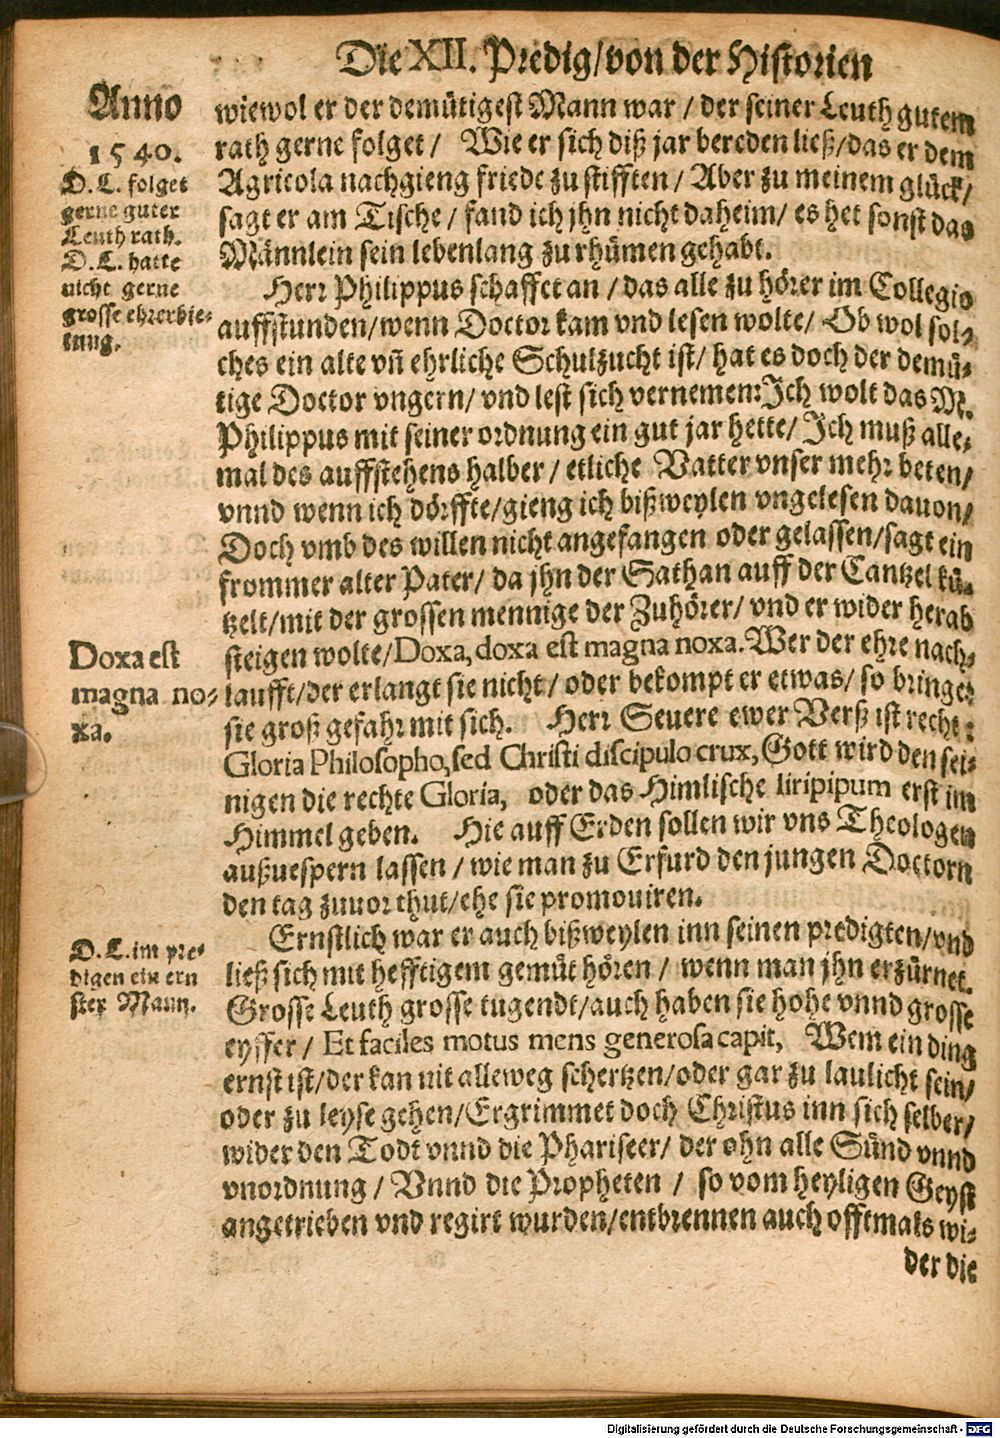 Die XII. Predig/von der Historien
Anno
1540.
D.L. folget
gerne guter
Leuth rath.
D.L. hatte
nicht gerne
grosse ehrerbie-
tung.
wiewol er der demütigest Mann war / der seiner Leuth gutem
rath gerne folget / Wie er sich diß jar bereden ließ/das er dem
Agricola nachgieng friede zu stifften / Aber zu meinem glück/
sagt er am Tische / fand ich jhn nicht daheim/ es het sonst das
Männlein sein lebenlang zu rhümen gehabt.
Herr Philippus schaffet an / das alle zuhörer im Collegio
auffstunden/wenn Doctor kam vnd lesen wolte/ Ob wol sol-
ches ein alte vñ ehrliche Schulzucht ist/ hat es doch der demü-
tige Doctor vngern/ vnd lest sich vernemen: Ich wolt das M.
Philippus mit seiner ordnung ein gut jar hette/ Ich muß alle-
mal des auffstehens halber / etliche Vatter vnser mehr beten/
vnnd wenn ich dörffte/gieng ich bißweylen vngelesen dauon/
Doch vmb des willen nicht angefangen oder gelassen/sagt ein
frommer alter Pater/ da jhn der Sathan auff der Cantzel kü-
tzelt/mit der grossen mennige der Zuhörer/ vnd er wider herab
steigen wolte/Doxa, doxa est magna noxa. Wer der ehre nach-
laufft/der erlangt sie nicht/ oder bekompt er etwas/ so bringet
sie groß gefahr mit sich. Herr Seuere ewer Verß ist recht:
Gloria Philosopho, sed Christi discipulo crux, Gott wird den sei-
nigen die rechte Gloria, oder das Himlische liripipum erst im
Himmel geben. Hie auff Erden sollen wir vns Theologen
außuespern lassen / wie man zu Erfurd den jungen Doctorn
den tag zuuor thut/ehe sie promouiren.
Doxa est
magna no-
xa.
Ernstlich war er auch bißweylen inn seinen predigten/vnd
ließ sich mit hefftigem gemüt hören / wenn man jhn erzürnet.
Grosse Leuth grosse tugendt/auch haben sie hohe vnnd grosse
eyffer / Et faciles motus mens generosa capit, Wem ein ding
ernst ist/der kan nit alleweg schertzen/oder gar zu laulicht sein/
oder zu leyse gehen/Ergrimmet doch Christus inn sich selber/
wider den Todt vnnd die Phariseer/ der ohn alle Sünd vnnd
vnordnung / Vnnd die Propheten / so vom heyligen Geyst
angetrieben vnd regirt wurden/entbrennen auch offtmals wi-
D.L. im pre-
digen ein ern
ster Mann.
der die
Digitalisierung gefördert durch die Deutsche Forschungsgemeinschaft - DFG